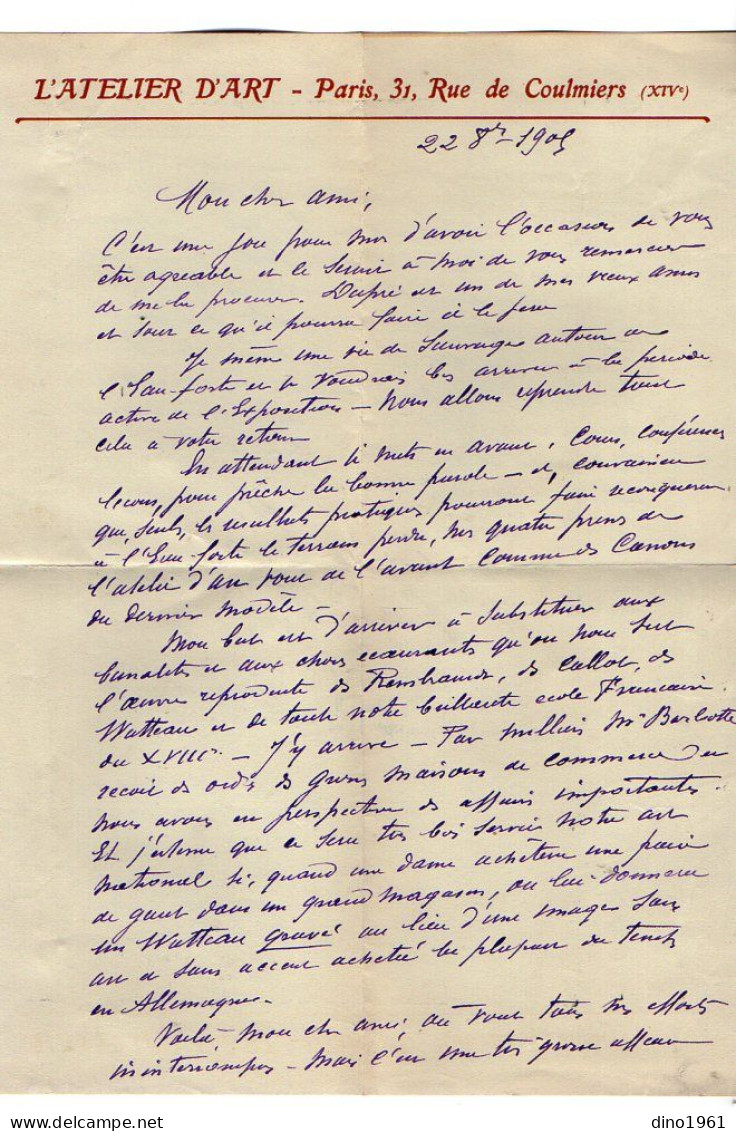 L'ATELIER D'ART - Paris, 31, Rue de Coulmiers (XIVe)
22 8bre 1905
Mon cher ami,
C'est une joie pour moi d'avoir l'occasion de vous
être agréable et le serait à moi de vous remercier
de me la procurer. Dupré est un de mes vieux amis
et tout ce qu'il pourra faire il le fera
Je mène une vie de Sauvage autour de
l'Eau forte et je voudrais les arriver à la période
active de l'Exposition - Nous allons reprendre tout
cela à votre retour
En attendant je mets en avant, Cours, Conférences
lecons, pour prêcher la bonne parole - et, convaincu
que, seuls, les resultats pratiques pourront faire reconquerir
à l'Eau forte le terrain perdu, les quatre presses de
l'atelier d'art vont de l'avant comme des Canons
du dernier modèle -
Mon but est d'arriver à substituer aux
banalités et aux choses ecœurantes qu'on nous sert
l'œuvre reproduite de Rembrandt, de Callot, de
Watteau et de toute notre brillante ecole Francaise
du XVIIIe. - J'y arrive - Par milliers Mr Barbotte
recoit des ordres de grosses maisons de commerce et
nous avons en perspective des affaires importantes.
Et j'estime que ce sera très bien servir notre art
national si, quand une dame achètera une paire
de gants dans un grand magasin, on lui donnera
un Watteau gravé au lieu d'une image sans
art et sans accent achetée la plupart du temps
en Allemagne.
Voilà mon cher ami, où vont tous mes efforts
ininterrompus - Mais c'est une très grosse affaire
dino1961